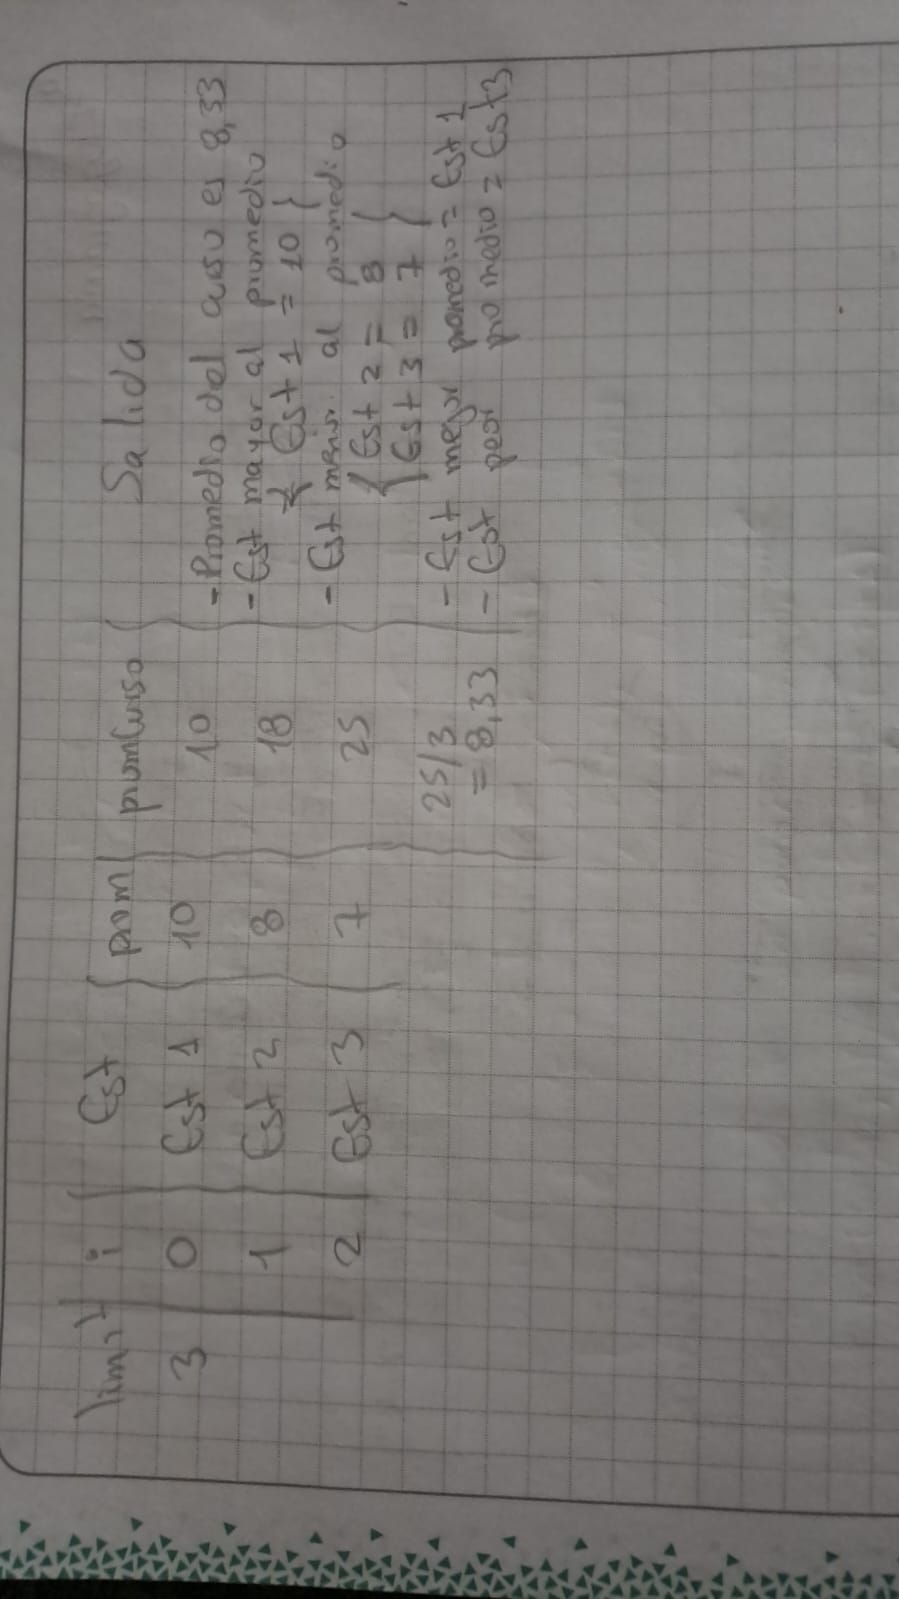 limit i Est prom promCurso Salida
3 0 Est 1 10 10 - Promedio del curso es 8,33
- Est mayor al promedio
1 Est 2 8 18 { Est 1 = 10 }
- Est menor al promedio
2 Est 3 7 25 { Est 2 = 8 }
{ Est 3 = 7 }
25/3 - Est mejor promedio = Est 1
= 8,33 - Est peor promedio = Est3